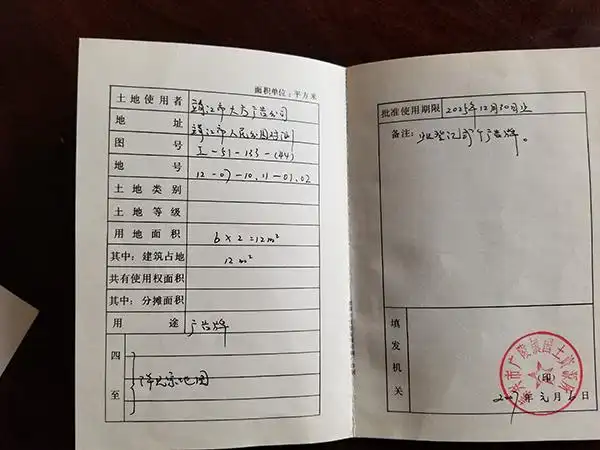 面积单位：平方米
土地使用者 靖江市大方广告公司
地 址 靖江市人民公园对面
图 号 I-51-133-(44)
地 号 12-07-10,11-01,02
土地类别
土地等级
用地面积 6×2=12m²
其中：建筑占地 12m²
共有使用权面积
其中：分摊面积
用 途 广告牌
四至 详见宗地图
批准使用期限 2025年12月30日止
备注： 此登记贰个广告牌。
填发机关
国土
(印)
年元月 日